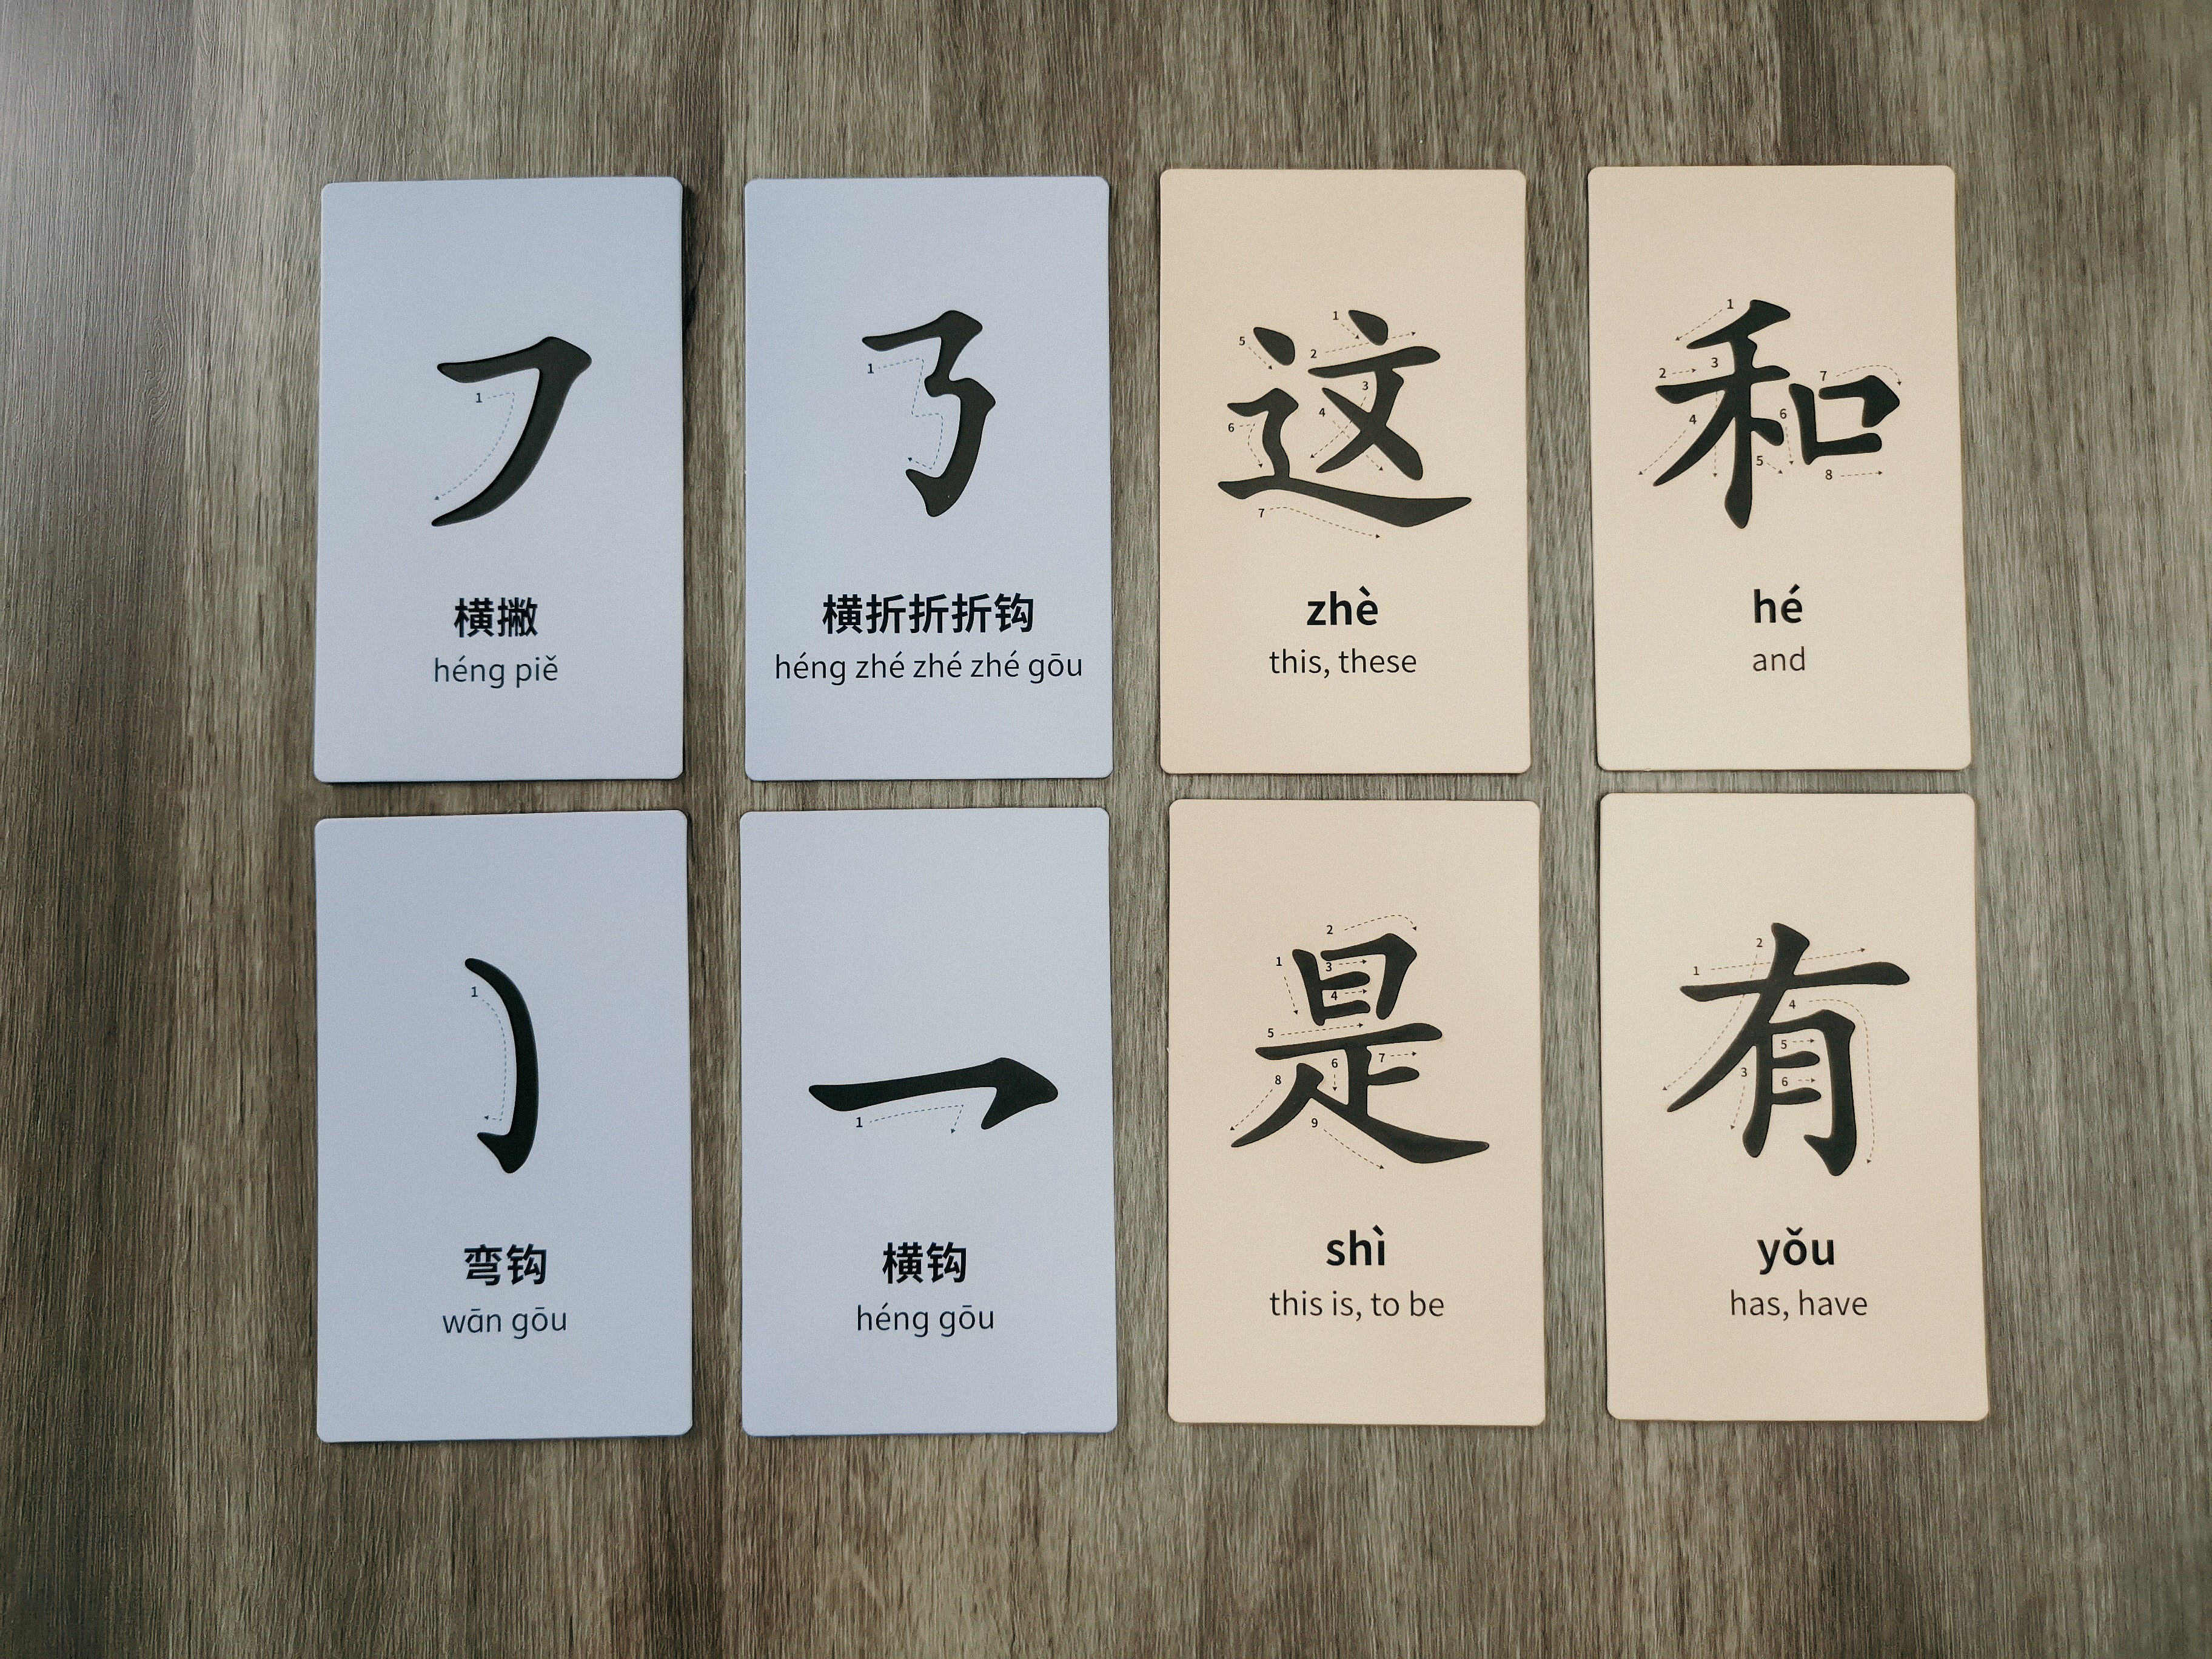 ㇇
1
横撇
héng piě
㇡
1
横折折折钩
héng zhé zhé zhé gōu
这
1
2
3
4
5
6
7
zhè
this, these
和
1
2
3
4
5
6
7
8
hé
and
㇁
1
弯钩
wān gōu
乛
1
横钩
héng gōu
是
1
2
3
4
5
6
7
8
9
shì
this is, to be
有
1
2
3
4
5
6
yǒu
has, have